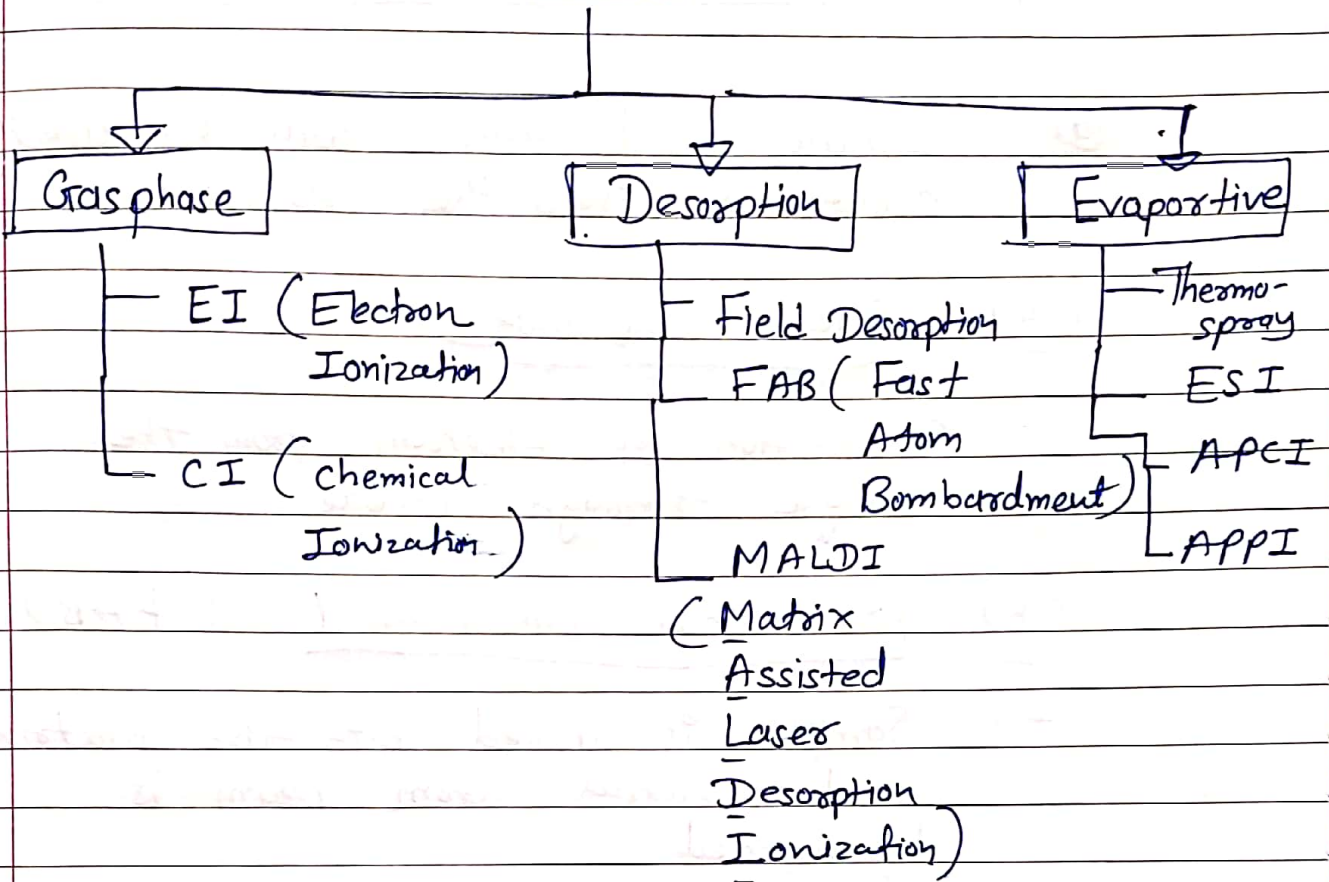 Gas phase
EI (Electron
Ionization)
CI (chemical
Ionization.)
Desorption
Field Desorption
FAB (Fast
Atom
Bombardment)
MALDI
(Matrix
Assisted
Laser
Desorption
Ionization)
Evaportive
Thermo-
spray
ESI
APCI
APPI